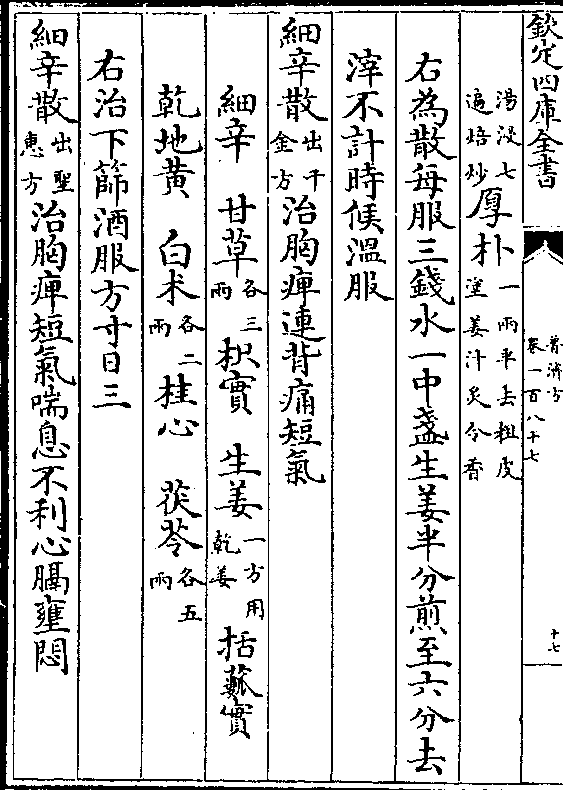 欽定四庫全書
普濟方
卷一百八十七
十七
湯浸七遍焙炒厚朴一兩半去粗皮塗姜汁炙令香
右為散每服三錢水一中盞生姜半分煎至六分去
滓不計時候溫服
細辛散出千金方治胸痺連背痛短氣
細辛 甘草各三兩 枳實 生姜一方用乾姜 括蓏實
乾地黄 白术各二兩 桂心 茯苓各五兩
右治下篩酒服方寸日三
細辛散出聖惠方治胸痺短氣喘息不利心膈壅悶